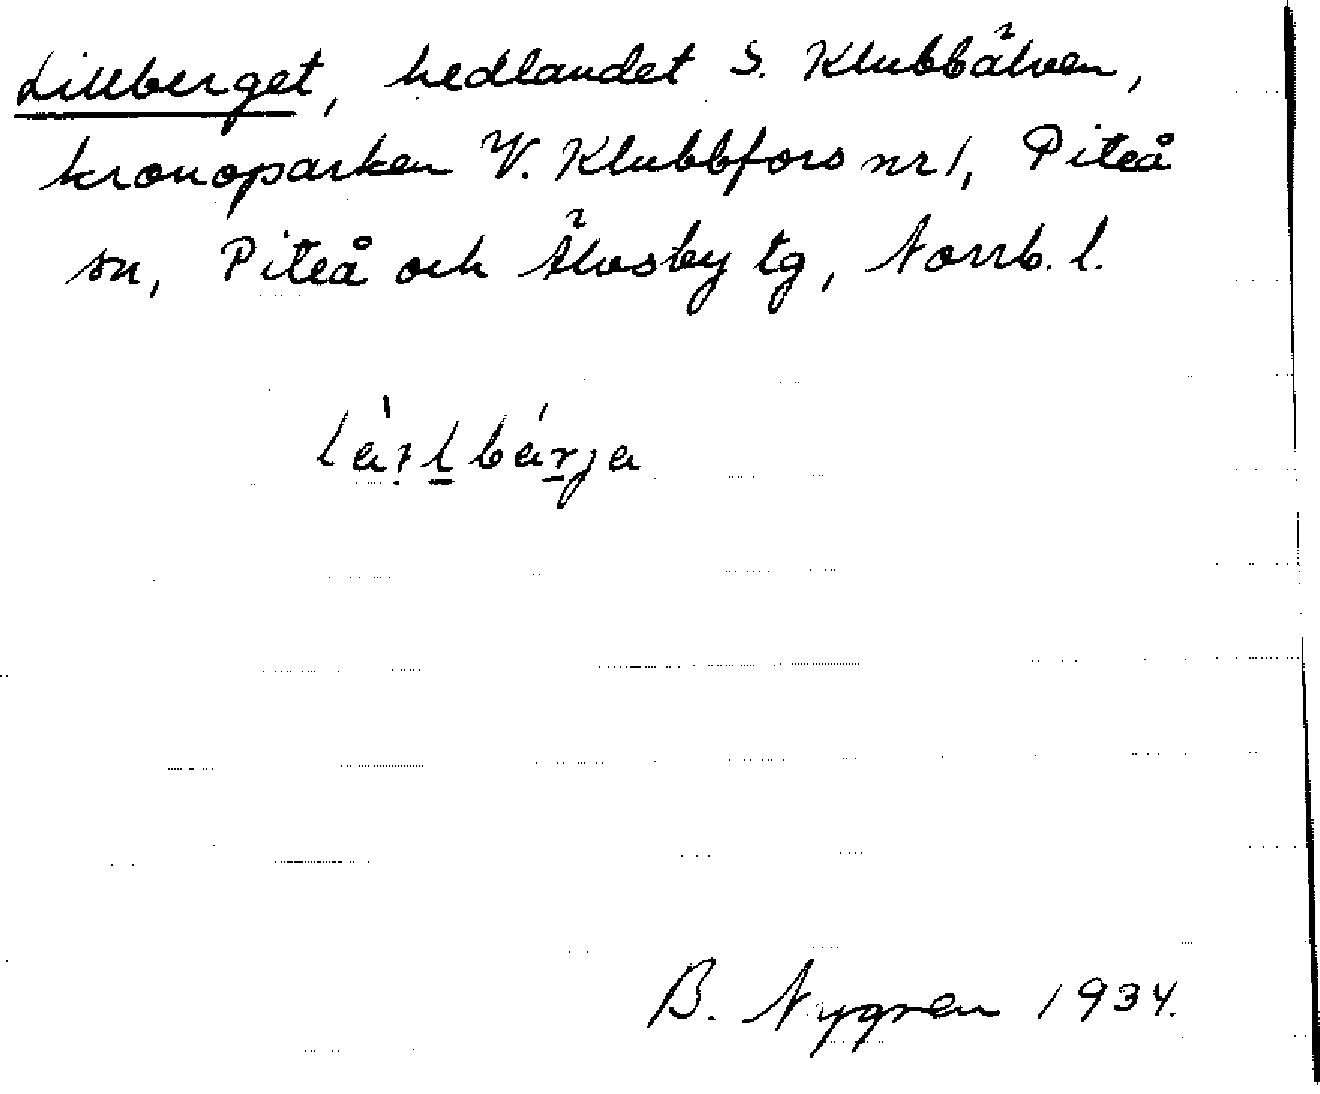 Lillberget, hedlandet S. Klubbälven,
kronoparken V. Klubbfors nr 1, Piteå
sn, Piteå och Älvsby tg, Norrb. l.
B. Nygren 1934.